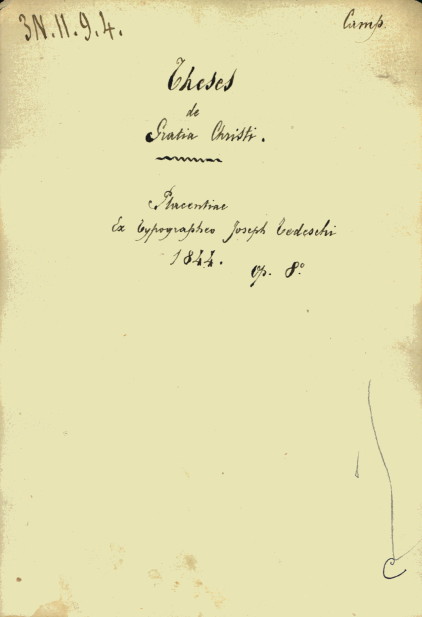 3N.11.9.4.
Camp.
Theses
de
Gratia Christi.
Placentiae
Ex typographeo Joseph Tedeschi
1844.
Op. 8°
C